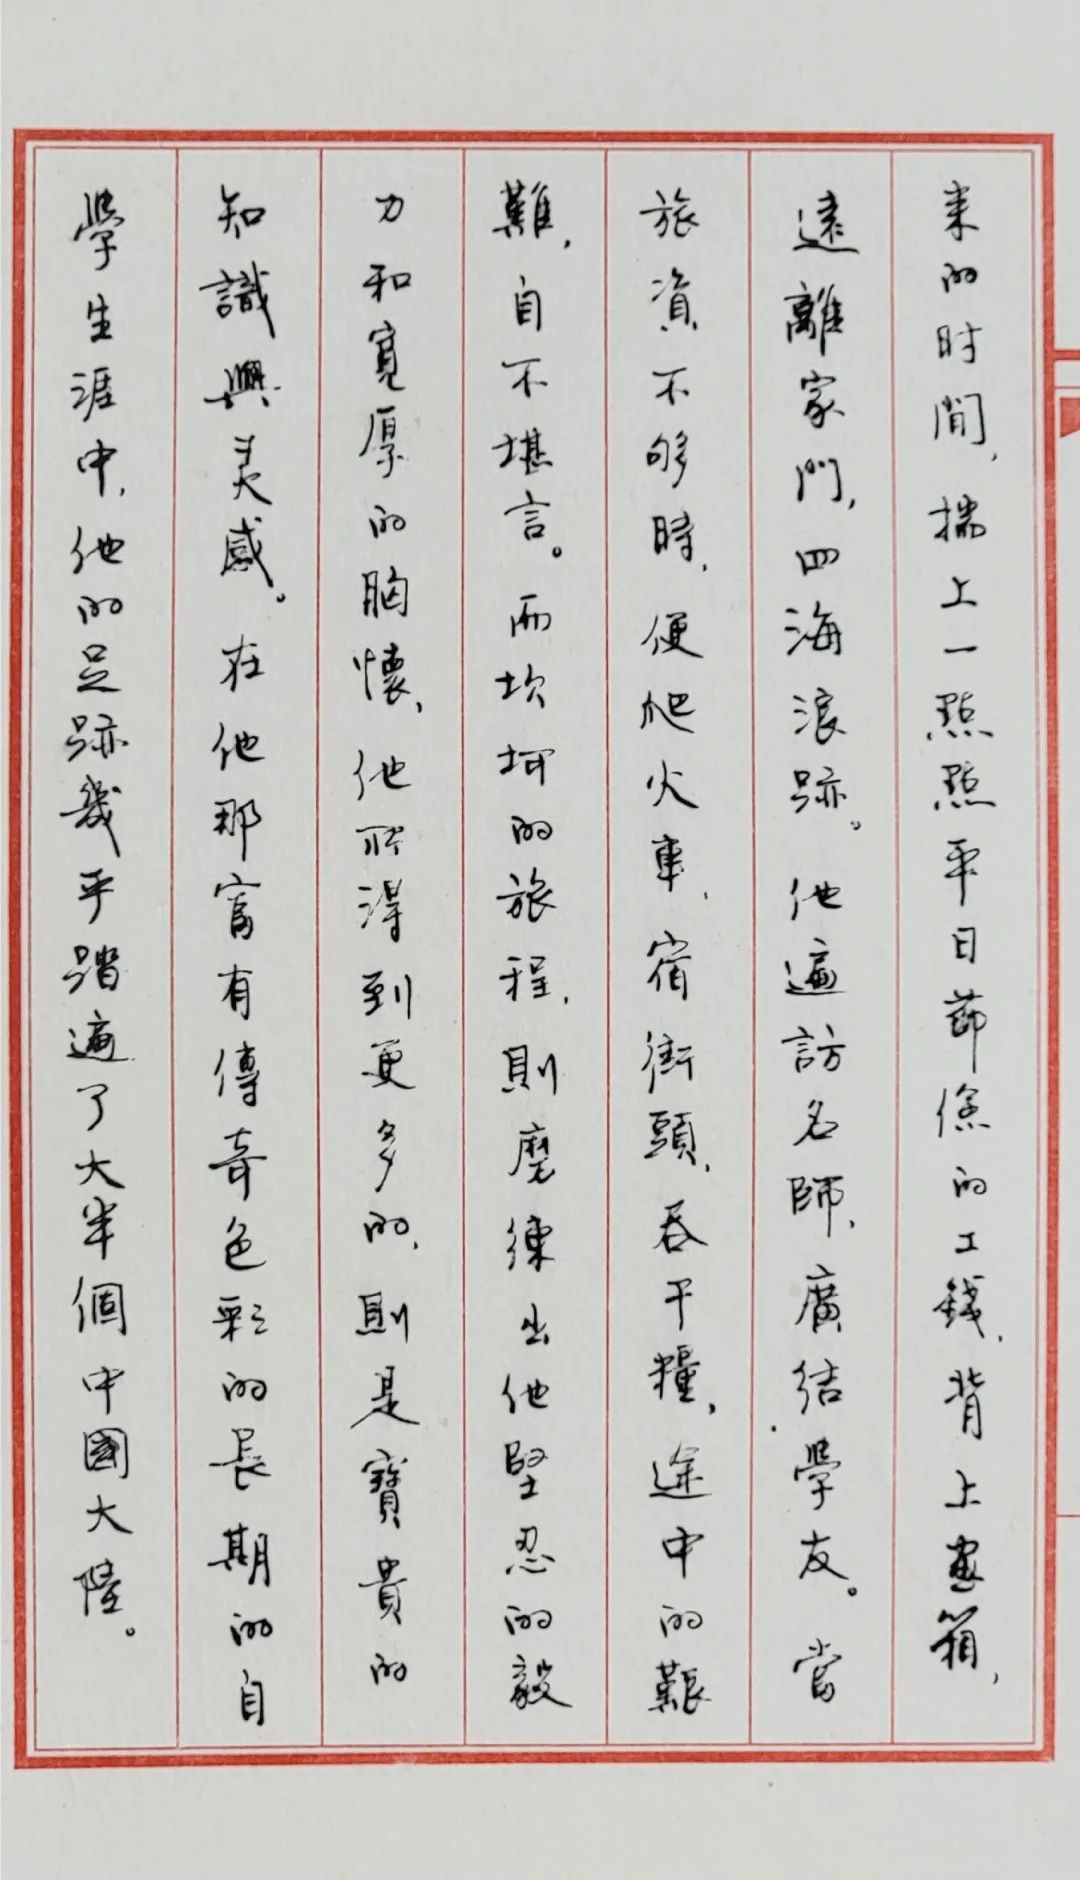 来的时間，揣上一點點平日節儉的工錢，背上画箱，
遠離家門，四海浪跡。他遍訪名師，廣結學友。當
旅資不够時，便爬火車，宿街頭，吞干糧，途中的艱
難，自不堪言。而坎坷的旅程，則磨練出他堅忍的毅
力和寬厚的胸懷，他所得到更多的，則是寶貴的
知識與灵感。在他那富有傳奇色彩的長期的自
學生涯中，他的足跡幾乎踏遍了大半個中國大陸。